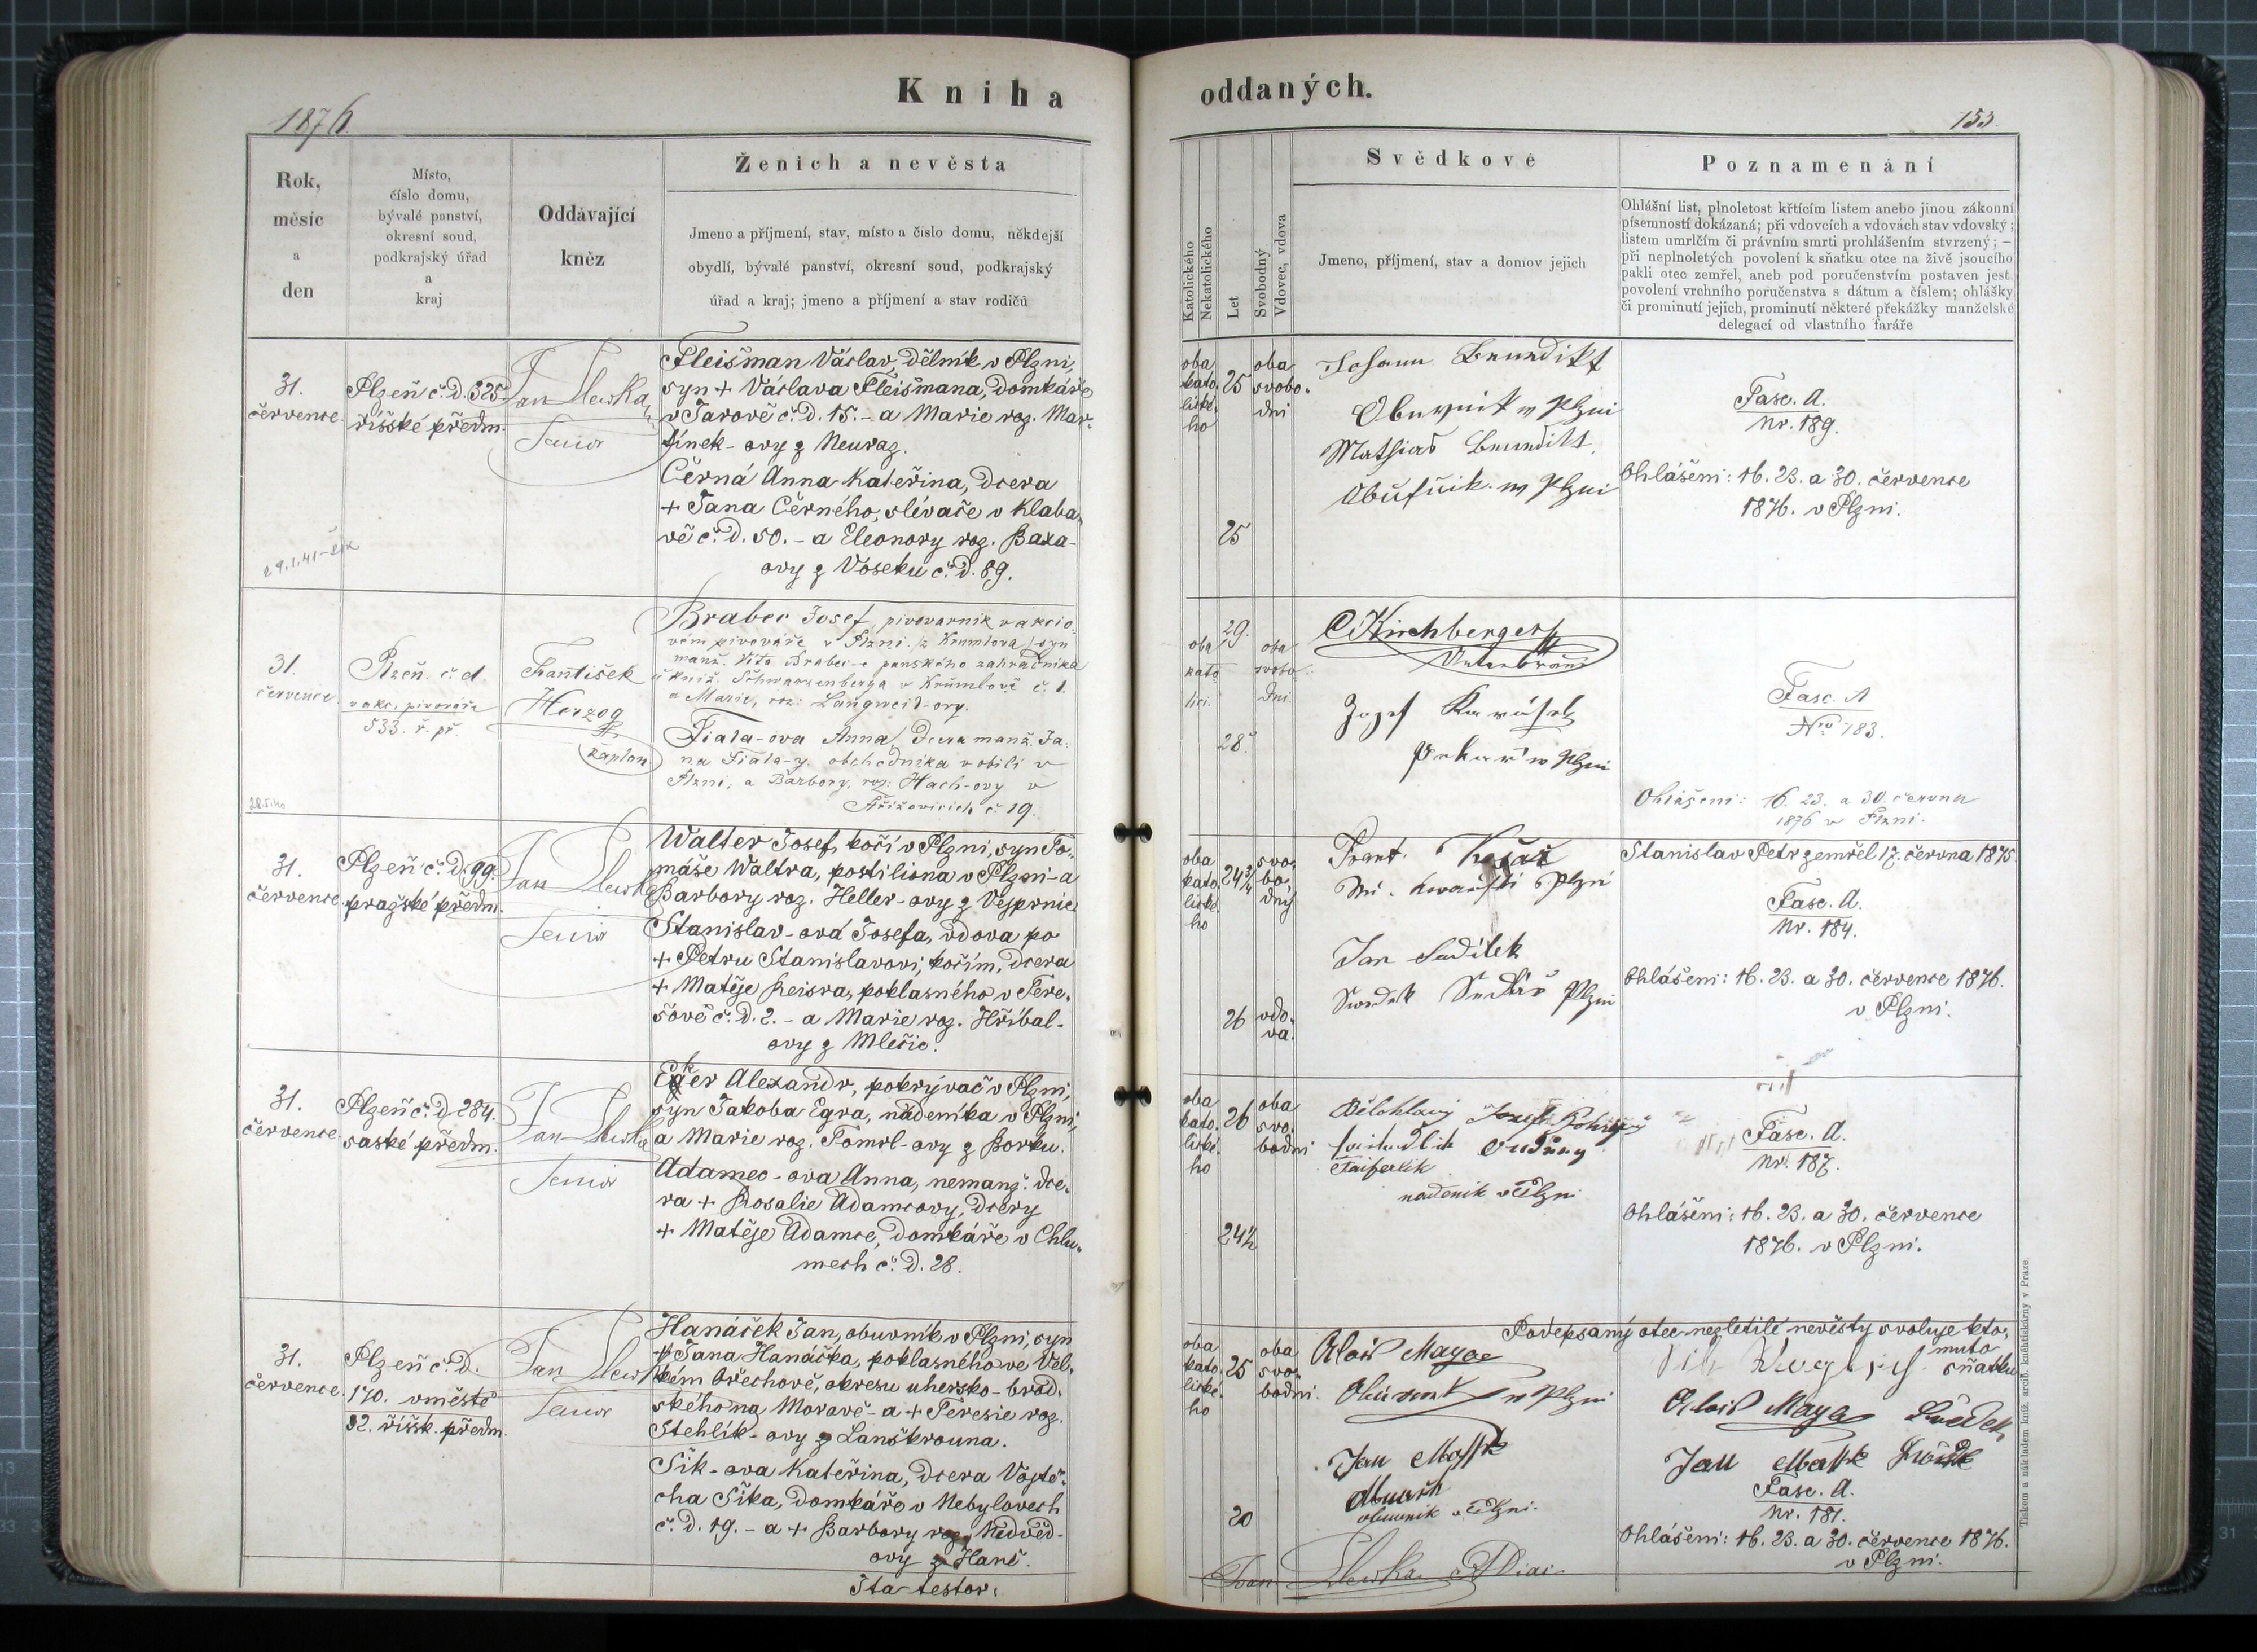 Kniha oddaných.
1876
153
Rok,
měsíc
a
den
Místo,
číslo domu,
bývalé panství,
okresní soud,
podkrajský úřad
a
kraj
Oddávající
kněz
Ženich a nevěsta
Jmeno a příjmení, stav, místo a číslo domu, někdejší
obydlí, bývalé panství, okresní soud, podkrajský
úřad a kraj; jmeno a příjmení a stav rodičů
Katolického
Nekatolického
Let
Svobodný
Vdovec, vdova
Svědkové
Jmeno, příjmení, stav a domov jejich
Poznamenání
Ohlášní list, plnoletost křtícím listem anebo jinou zákonní
písemností dokázaná; při vdovcích a vdovách stav vdovský;
listem umrlčím či právním smrti prohlášením stvrzený; —
při neplnoletých povolení k sňatku otce na živě jsoucího
pakli otec zemřel, aneb pod poručenstvím postaven jest.
povolení vrchního poručenstva s dátum a číslem; ohlášky
či prominutí jejich, prominutí některé překážky manželské
delegací od vlastního faráře
31.
července.
Plzeň č. d. 325.
říšské předm.
Jan
Senior
Fleišman Václav, dělník v Plzni,
syn + Václava Fleišmana, domkáře
v Žarově č. d. 15. - a Marie roz. Mar-
tínek-ovy z Neuraz.
Černá Anna Kateřina, dcera
+ Jana Černého, slévače v Klaba-
vě č. d. 50. - a Eleonory roz. Baxa-
ovy z Voseku č. d. 89.
oba
kato.
lické.
ho
25
oba
svobo-
dni
25
Johann Benedikt
Obuvnik w Plzni
Mathias Benedikt
w Plzni
Fasc. A.
Nr. 189.
Ohlášeni: 16. 23. a 30. července
1876. v Plzni.
29.1.41
31.
července
Plzeň. č. d.
v akc. pivováře
533. ř. př.
František
Herzog
kaplan
Brabec Josef, pivovarník v akcio-
vém pivováře v Plzni /z Krumlova/ syn
manž. Víta Brabec-e panského zahradníka
kníž. Schwarzenberga v Krumlově č. 1.
a Marie, roz. Langweil-ovy.
Fiala-ova Anna, dcera manž. Ja-
na Fiala-y. obchodníka v obilí v
Plzni, a Barbory, roz. Hach-ovy v
Křižovicích č. 19.
oba
kato
lici.
29.
oba
svobo
dni.
28.
Kirchberger
Jozef
w Plzni
Fasc. A
Nro 183.
Ohlášeni: 16. 23. a 30. června
1876 v Plzni.
31.
července.
Plzeň č. d. 99.
pražské předm.
Jan
Senior
Walter Josef, kočí v Plzni, syn To-
máše Waltra, postiliona v Plzni - a
Barbory roz. Heller-ovy z Vejprnic
Stanislav-ová Josefa, vdova po
+ Petru Stanislavovi, kočím, dcera
+ Matěje Reisra, poklasného v Tere-
šově č. d. 2. - a Marie roz. Hříbal-
ovy z Mlečic.
oba
kato.
lické.
ho
24¾
svo-
bo-
dný
26
vdo-
va.
Frant.
Plzni
Jan Sedilek
Plzni
Stanislav Petr zemřel 17. června 1875.
Fasc. A.
Nr. 184.
Ohlášeni: 16. 23. a 30. července 1876.
v Plzni.
31.
července.
Plzeň č. d. 284.
saské předm.
Jan
Senior
Eger Alexandr, pokrývač v Plzni,
syn Jakoba Egra, nádeníka v Plzni,
a Marie roz. Tomrl-ovy z Borku.
Adamec-ova Anna, nemanž. dce-
ra + Rosalie Adamcovy, dcery
+ Matěje Adamce, domkáře v Chlu-
mech č. d. 28.
oba
kato.
lické.
ho
26
oba
svo-
bodni
24½
Bělohlavý Josef
nadenik v Plzni
Fasc. A.
Nr. 187.
Ohlášeni: 16. 23. a 30. července
1876. v Plzni.
31.
července.
Plzeň č. d.
170. v městě
32. říšsk. předm.
Jan
Senior
Hanáček Jan, obuvník v Plzni, syn
+ Jana Hanáčka, poklasného ve Vel-
kém Ořechově, okresu uhersko-brod-
ského na Moravě - a + Teresie roz.
Stehlík-ovy z Lanškrouna.
Šik-ova Kateřina, dcera Vojtě-
cha Šika, domkáře v Nebylovech
č. d. 19. - a + Barbory roz. Nedvěd-
ovy z Hané.
Ita testor:
oba
kato.
lické.
ho
25
oba
svo-
bodni.
20
Alois Mayer
w Plzni
Jan
obuvník v Plzni.
Podepsaný otec nezletilé nevěsty svoluje kto-
muto
sňatku
Alois Mayer
Jan
Fasc. A.
Nr. 181.
Ohlášeni: 16. 23. a 30. července 1876.
v Plzni.
Tiskem a nákladem kníž. arcib. knihtiskárny v Praze.